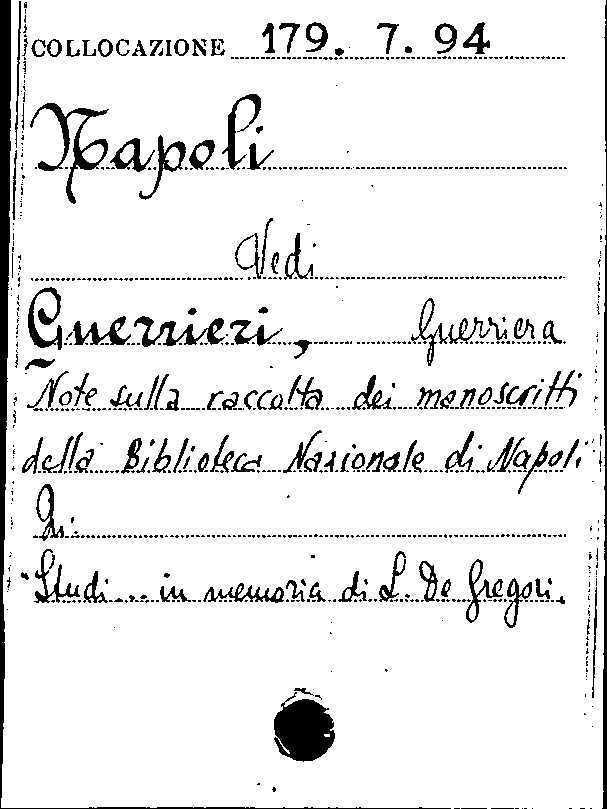 COLLOCAZIONE 179. 7. 94
Napoli
Vedi
Guerrieri, Guerriera
Note sulla raccolta dei manoscritti
della Biblioteca Nazionale di Napoli
In:
"Studi... in memoria di L. De Gregori.